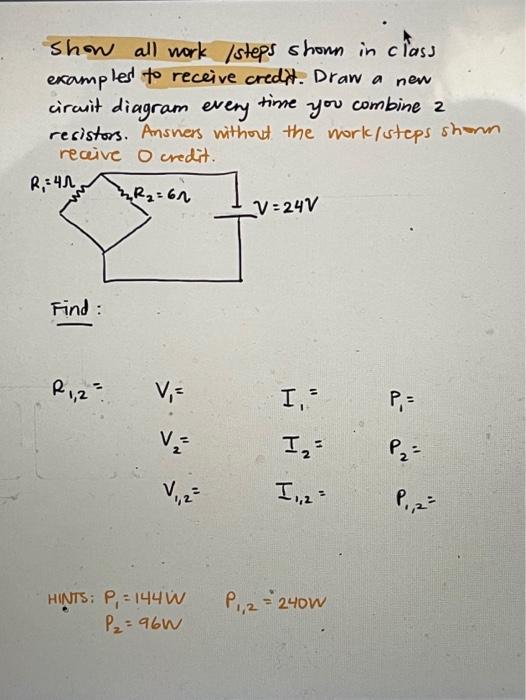 Show all work /steps shown in class
exampled to receive credit. Draw a new
circuit diagram every time you combine 2
resistors. Answers without the work/steps shown
receive 0 credit.
R₁=4Ω
R₂=6Ω
V=24V
Find:
R₁,₂= V₁= I₁= P₁=
V₂= I₂= P₂=
V₁,₂= I₁,₂= P₁,₂=
HINTS: P₁=144W P₁,₂=240W
P₂=96W